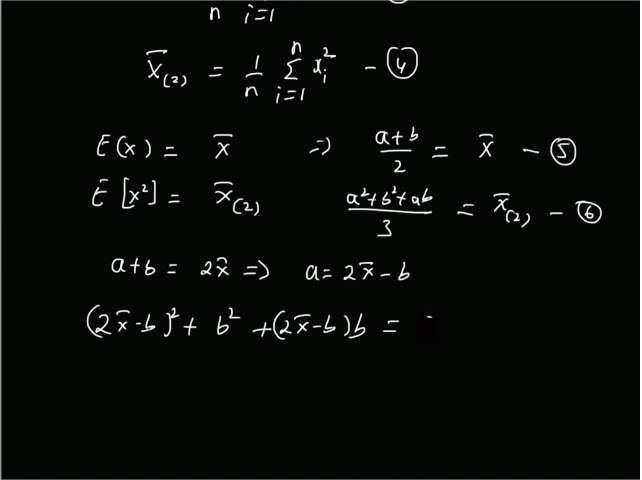 n i=1
x̄₍₂₎ = 1/n Σ_{i=1}^{n} xᵢ² - ④
E(x) = x̄ => (a+b)/2 = x̄ - ⑤
E[x²] = x̄₍₂₎ (a²+b²+ab)/3 = x̄₍₂₎ - ⑥
a+b = 2x̄ => a = 2x̄ - b
(2x̄-b)² + b² + (2x̄-b)b =